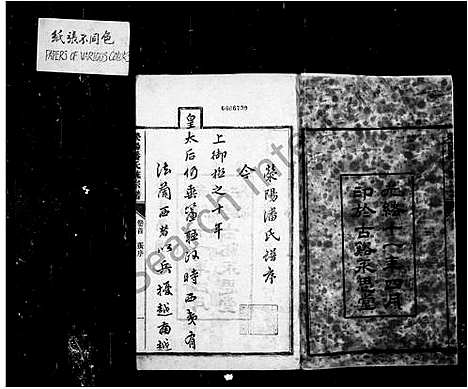 紙張不同色
PAPERS OF VARIOUS COLORS
滎陽潘氏譜序
今
上御極之十年
皇太后仍垂簾聽政時西夷有
法蘭西者以兵擾越南越
卷首 張序
年四月
印於古
Search Int